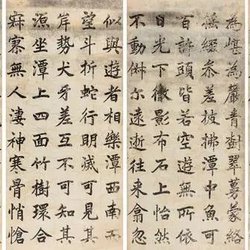 為嵁為巖青樹翠蔓蒙絡
搖綴參差披拂潭中魚可
百許頭皆若空遊無所依
日光下澈影布石上怡然
不動俶爾遠逝往來翕忽
似與遊者相樂潭西南而
望斗折蛇行明滅可見其
岸勢犬牙差互不可知其
源坐潭上四面竹樹環合
寂寥無人淒神寒骨悄愴